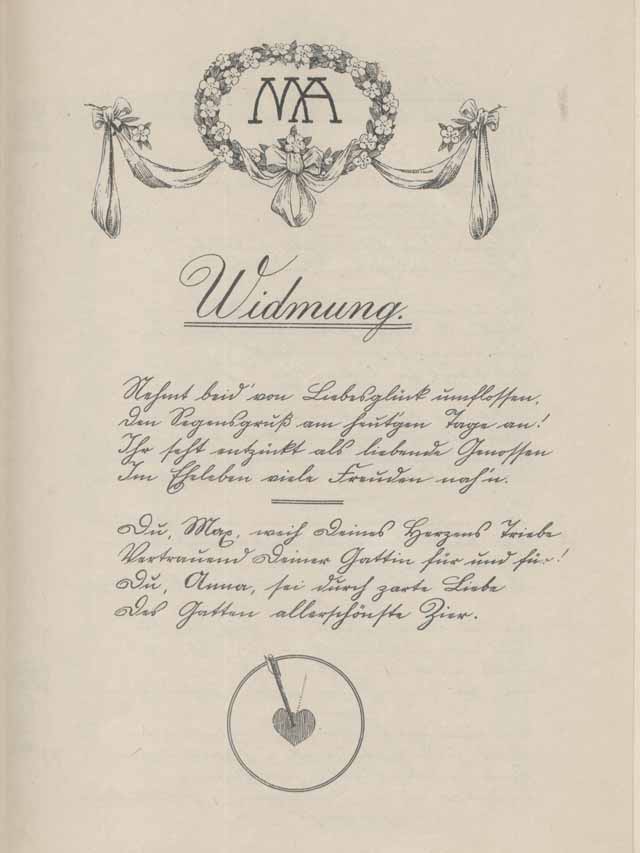 MA
Widmung.
Nehmt beid' von Liebesglück umflossen,
Den Segensgruß am heut'gen Tage an!
Ihr seht entzückt als liebende Genossen
Im Eheleben viele Freuden nah'n.
Du, Max, weih Deines Herzens Triebe
Vertrauend Deiner Gattin für und für!
Du, Anna, sei durch zarte Liebe
Des Gatten allerschönste Zier.